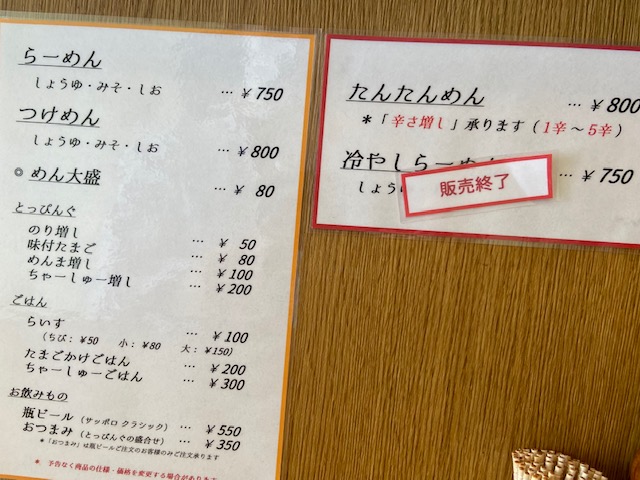 らーめん
しょうゆ・みそ・しお … ¥750
つけめん
しょうゆ・みそ・しお … ¥800
◎ めん大盛 … ¥ 80
とっぴんぐ
のり増し … ¥ 50
味付たまご … ¥ 80
めんま増し … ¥100
ちゃーしゅー増し … ¥200
ごはん
らいす … ¥100
(ちび:¥50 小:¥80 大:¥150)
たまごかけごはん … ¥200
ちゃーしゅーごはん … ¥300
お飲みもの
瓶ビール (サッポロ クラシック) … ¥550
おつまみ (とっぴんぐの盛合せ) … ¥350
*「おつまみ」は瓶ビールご注文のお客様のみご注文承ります
* 予告なく商品の仕様・価格を変更する場合があり
たんたんめん … ¥800
*「辛さ増し」承ります(1辛~5辛)
冷やしらーめん … ¥750
しょう
販売終了